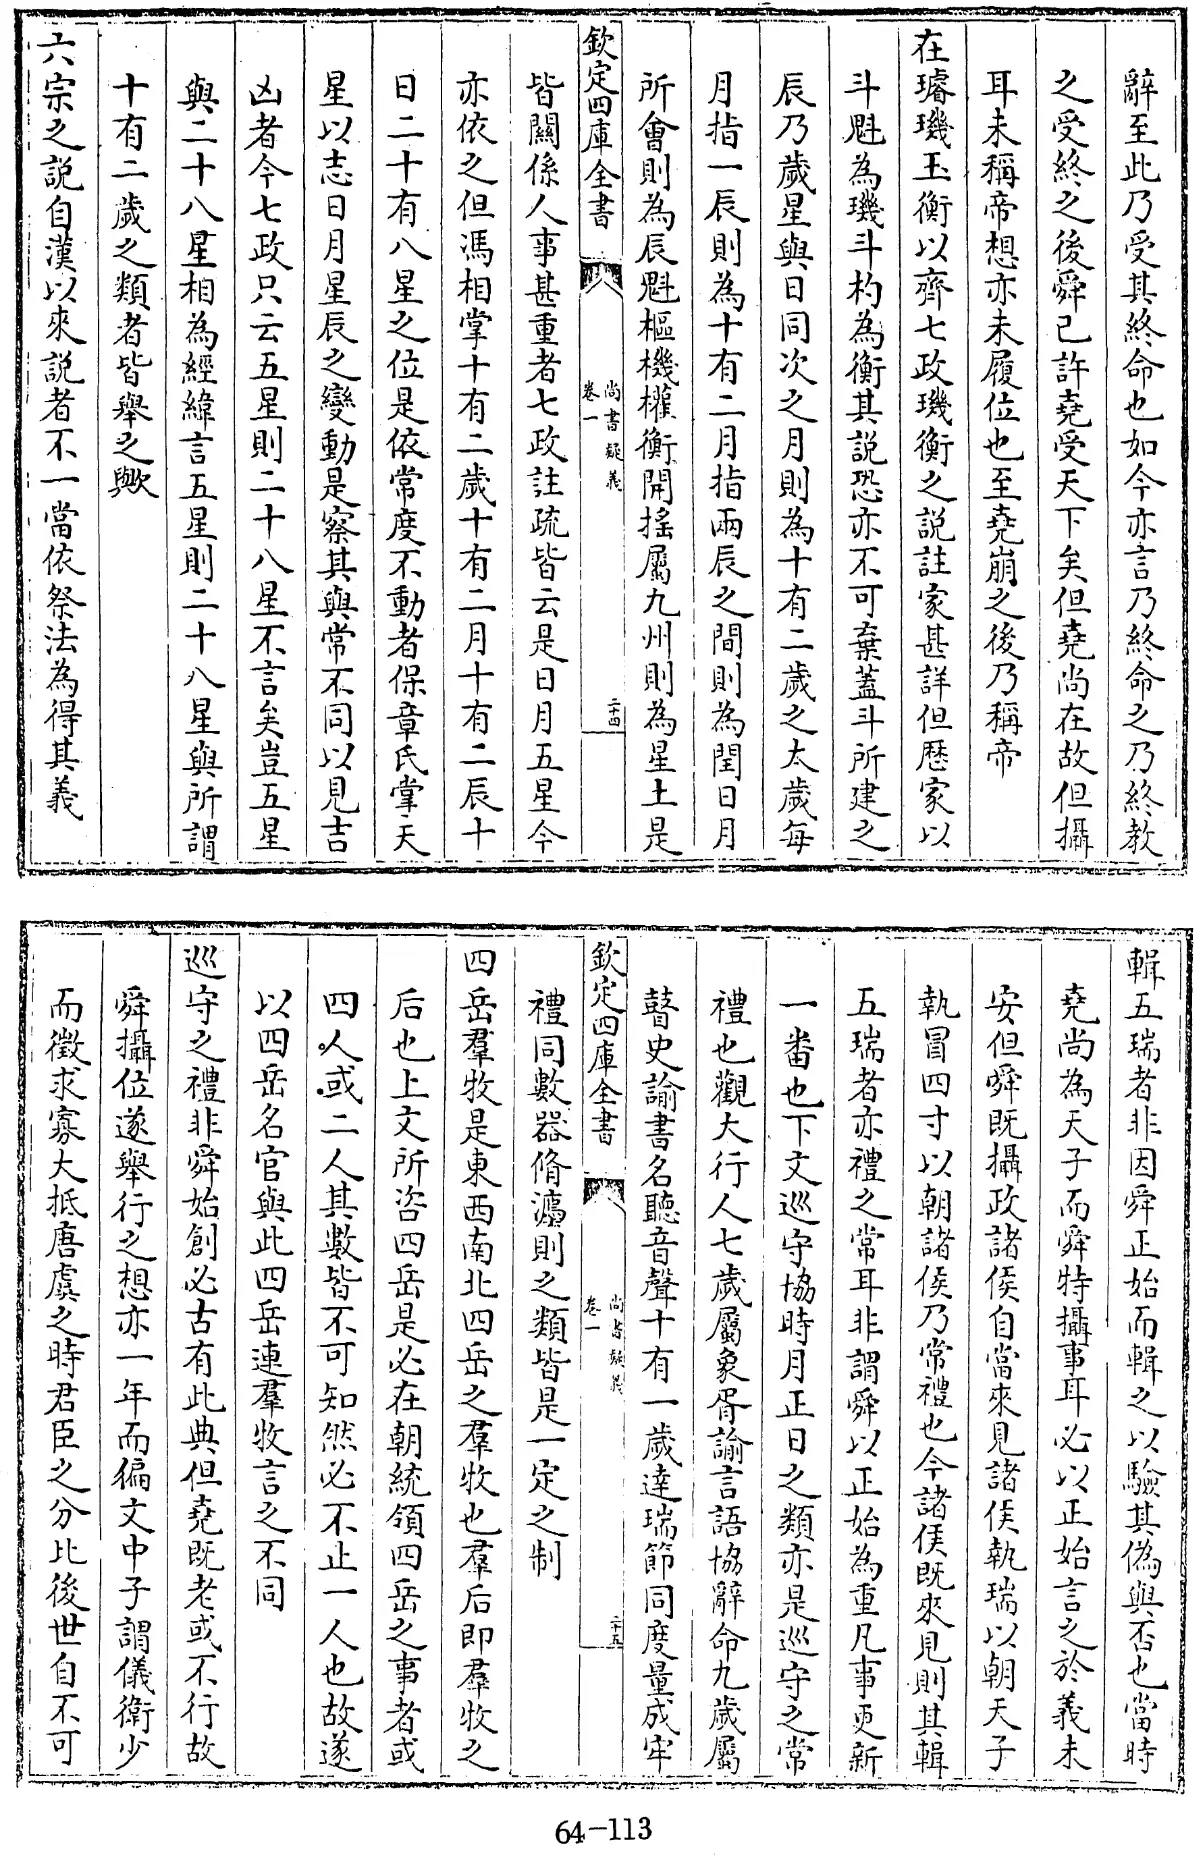 辭至此乃受其終命也如今亦言乃終命之乃終教
之受終之後舜已許堯受天下矣但堯尚在故但攝
耳未稱帝想亦未履位也至堯崩之後乃稱帝
在璿璣玉衡以齊七政璣衡之說註家甚詳但歴家以
斗魁為璣斗杓為衡其說恐亦不可棄蓋斗所建之
辰乃歲星與日同次之月則為十有二歲之太歲每
月指一辰則為十有二月指兩辰之間則為閏日月
所會則為辰魁樞機權衡開搖屬九州則為星土是
欽定四庫全書
尚書疑義
卷一
二十四
皆關係人事甚重者七政註疏皆云是日月五星今
亦依之但馮相掌十有二歲十有二月十有二辰十
日二十有八星之位是依常度不動者保章氏掌天
星以志日月星辰之變動是察其與常不同以見吉
凶者今七政只云五星則二十八星不言矣豈五星
與二十八星相為經緯言五星則二十八星與所謂
十有二歲之類者皆舉之歟
六宗之說自漢以來說者不一當依祭法為得其義
輯五瑞者非因舜正始而輯之以驗其偽與否也當時
堯尚為天子而舜特攝事耳必以正始言之於義未
安但舜既攝政諸侯自當來見諸侯執瑞以朝天子
執冒四寸以朝諸侯乃常禮也今諸侯既來見則其輯
五瑞者亦禮之常耳非謂舜以正始為重凡事更新
一番也下文巡守協時月正日之類亦是巡守之常
禮也觀大行人七歲屬象胥諭言語協辭命九歲屬
瞽史諭書名聽音聲十有一歲達瑞節同度量成牢
欽定四庫全書
尚書疑義
卷一
二十五
禮同數器脩灋則之類皆是一定之制
四岳羣牧是東西南北四岳之羣牧也羣后即羣牧之
后也上文所咨四岳是必在朝統領四岳之事者或
四人或二人其數皆不可知然必不止一人也故遂
以四岳名官與此四岳連羣牧言之不同
巡守之禮非舜始創必古有此典但堯既老或不行故
舜攝位遂舉行之想亦一年而徧文中子謂儀衛少
而徵求寡大抵唐虞之時君臣之分比後世自不可
64-113